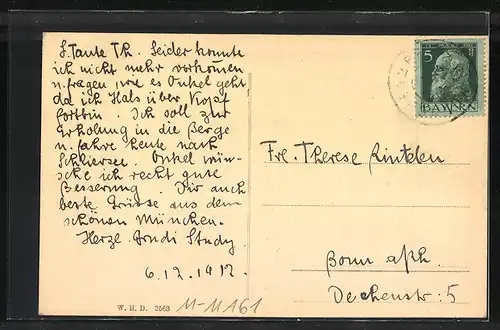 L. Tante Th. Leider konnte
ich nicht mehr vorkommen
u. fragen, wie es Onkel geht
da ich Hals über Kopf
fortbin. Ich soll zur
Erholung in die Berge
u. fahre heute nach
Schliersee. Onkel wün-
sche ich recht gute
Besserung. Dir auch
beste Grüsse aus dem
schönen München.
Herzl.
6.12.1912.
W. H. D. 2563
M-M161
5
BAYERN
Frl. Therese Rintelen
Bonn a/Rh.
Dechenstr: 5